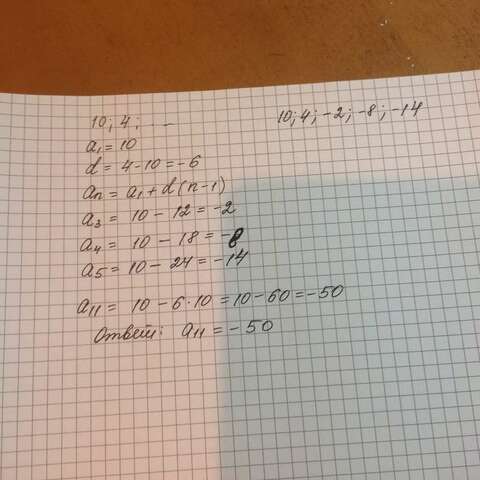 10; 4; . . . 10; 4; -2; -8; -14
a₁ = 10
d = 4-10 = -6
aₙ = a₁ + d(n-1)
a₃ = 10 - 12 = -2
a₄ = 10 - 18 = -8
a₅ = 10 - 24 = -14
a₁₁ = 10 - 6·10 = 10-60 = -50
Ответ: a₁₁ = -50